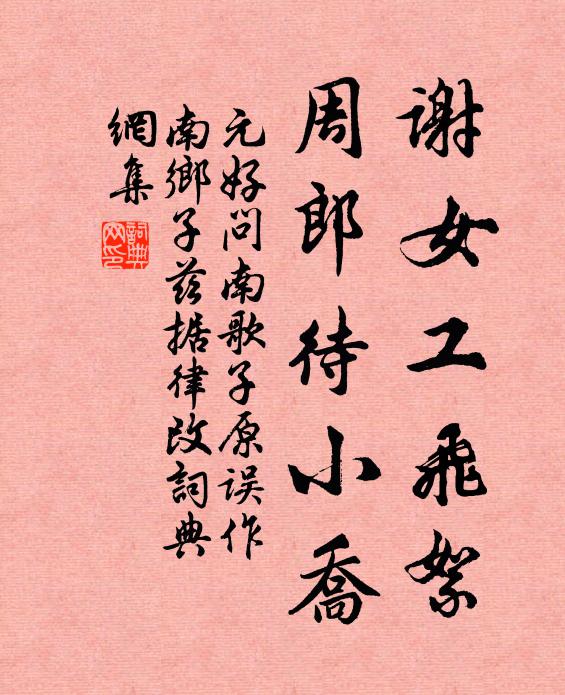 謝女工飛絮
周郎待小喬
元好问南歌子原误作
南鄉子茲据律改詞典
網集
詞典
网印